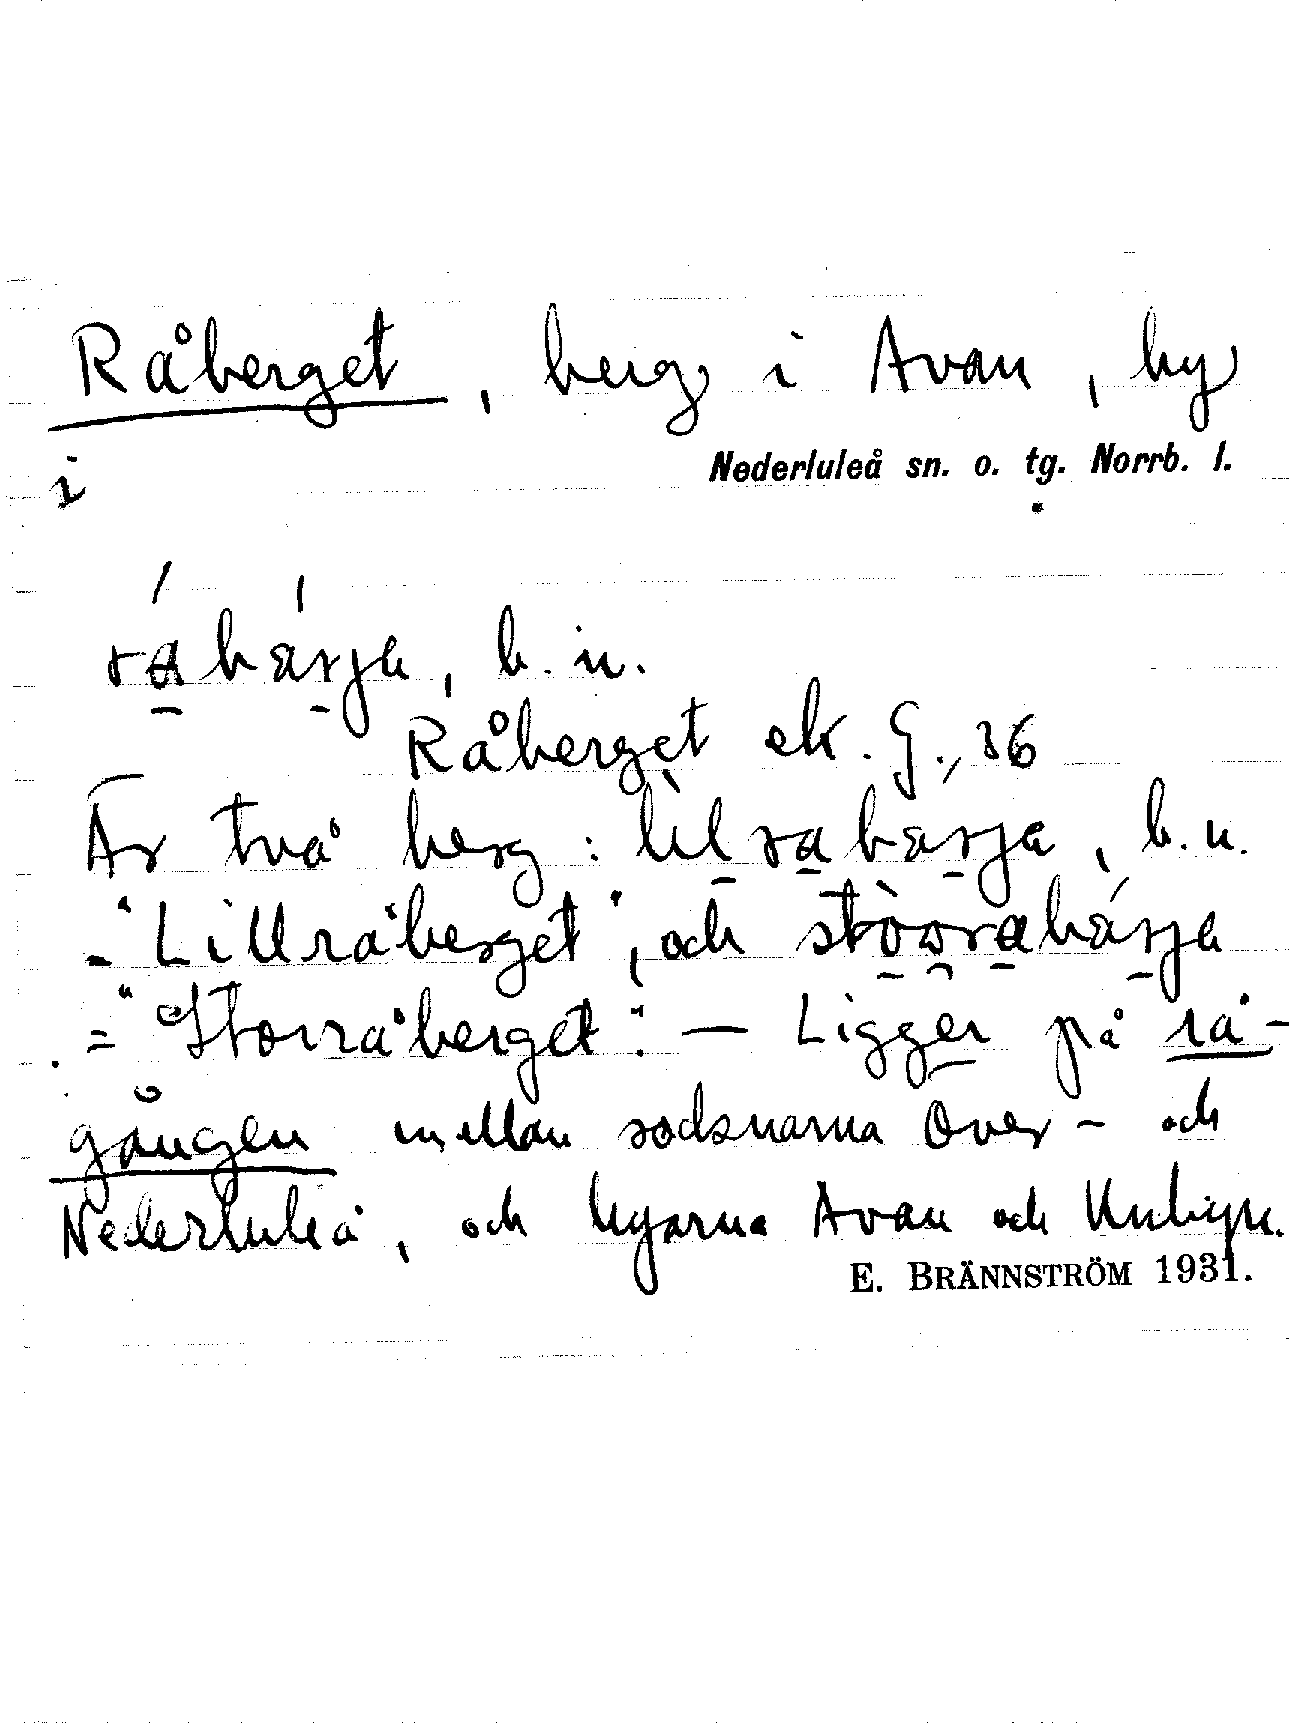 Råberget, berg i Avan, by
i Nederluleå sn. o. tg. Norrb. l.
rábárja, b. u.
Råberget ek. G., 36
Är två berg: lìlrabarja, b. u.
= "Lillråberget", och stòorabárja
= "Storråberget". — Ligger på rå-
gången mellan socknarna Över- och
Nederluleå, och byarna Avan och Unbyn.
E. BRÄNNSTRÖM 1931.